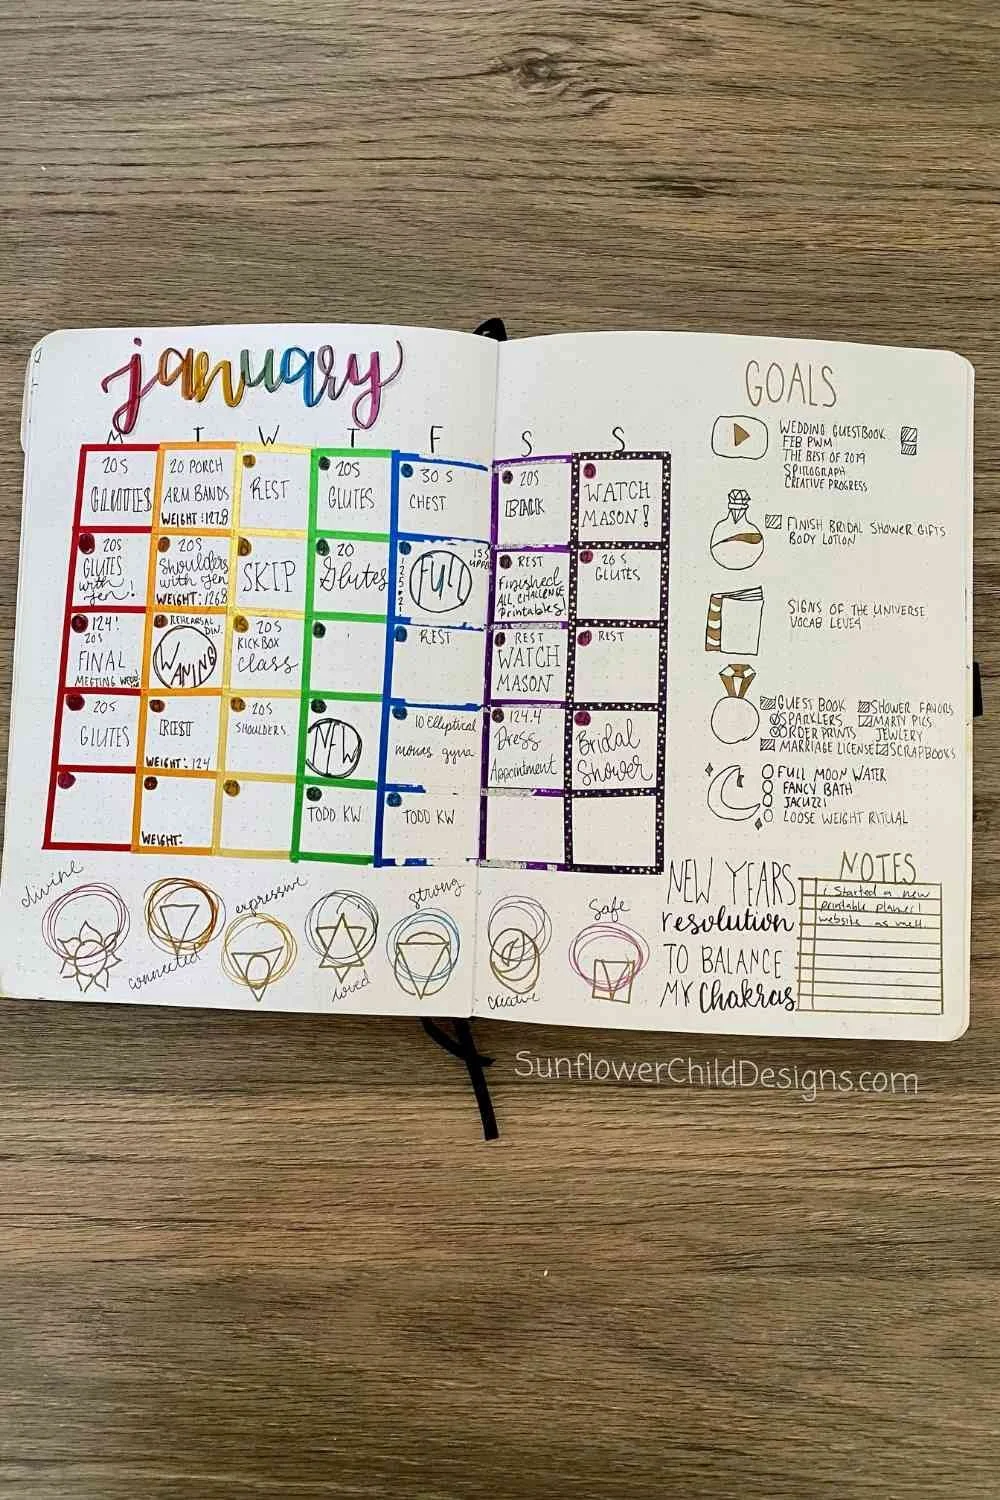 january
GOALS
M T W T F S S
20 S
GLUTES
20 PORCH
ARM BANDS
WEIGHT: 127.8
REST
20S
GLUTES
30 S
CHEST
20S
BACK
WATCH
MASON!
20S
GLUTES
with
Jen!
20 S
Shoulders
with Jen
WEIGHT: 126.8
SKIP
20
Glutes
FULL
REST
Finished
ALL CHALLENGE
Printables
20 S
GLUTES
124!
20S
FINAL
MEETING
REHEARSAL
DIN.
WANING
20S
KICKBOX
class
REST
REST
WATCH
MASON
REST
20S
GLUTES
REST
WEIGHT: 124
20S
SHOULDERS
NEW
10 Elliptical
124.4
Dress
Appointment
Bridal
Shower
WEIGHT:
TODD KW
TODD KW
WEDDING GUESTBOOK
FEB PWM
THE BEST OF 2019
SPIROGRAPH
CREATIVE PROGRESS
FINISH BRIDAL SHOWER GIFTS
BODY LOTION
SIGNS OF THE UNIVERSE
VOCAB
GUEST BOOK SHOWER FAVORS
SPARKLERS MARTY PICS
ORDER PRINTS JEWLERY
MARRIAGE LICENSE SCRAPBOOKS
FULL MOON WATER
FANCY BATH
JACUZZI
LOOSE WEIGHT RITUAL
divine
connected
expressive
loved
strong
creative
safe
NEW YEARS
resolution
TO BALANCE
MY Chakras
NOTES
i started a new
printable planner!
website as well.
SunflowerChildDesigns.com